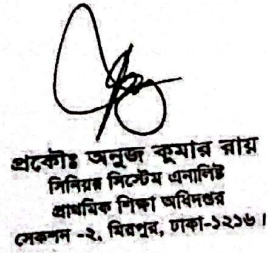 প্রকৌঃ অনুজ কুমার রায়
সিনিয়র সিস্টেম এনালিষ্ট
প্রাথমিক শিক্ষা অধিদপ্তর
সেকশন -২, মিরপুর, ঢাকা-১২১৬।